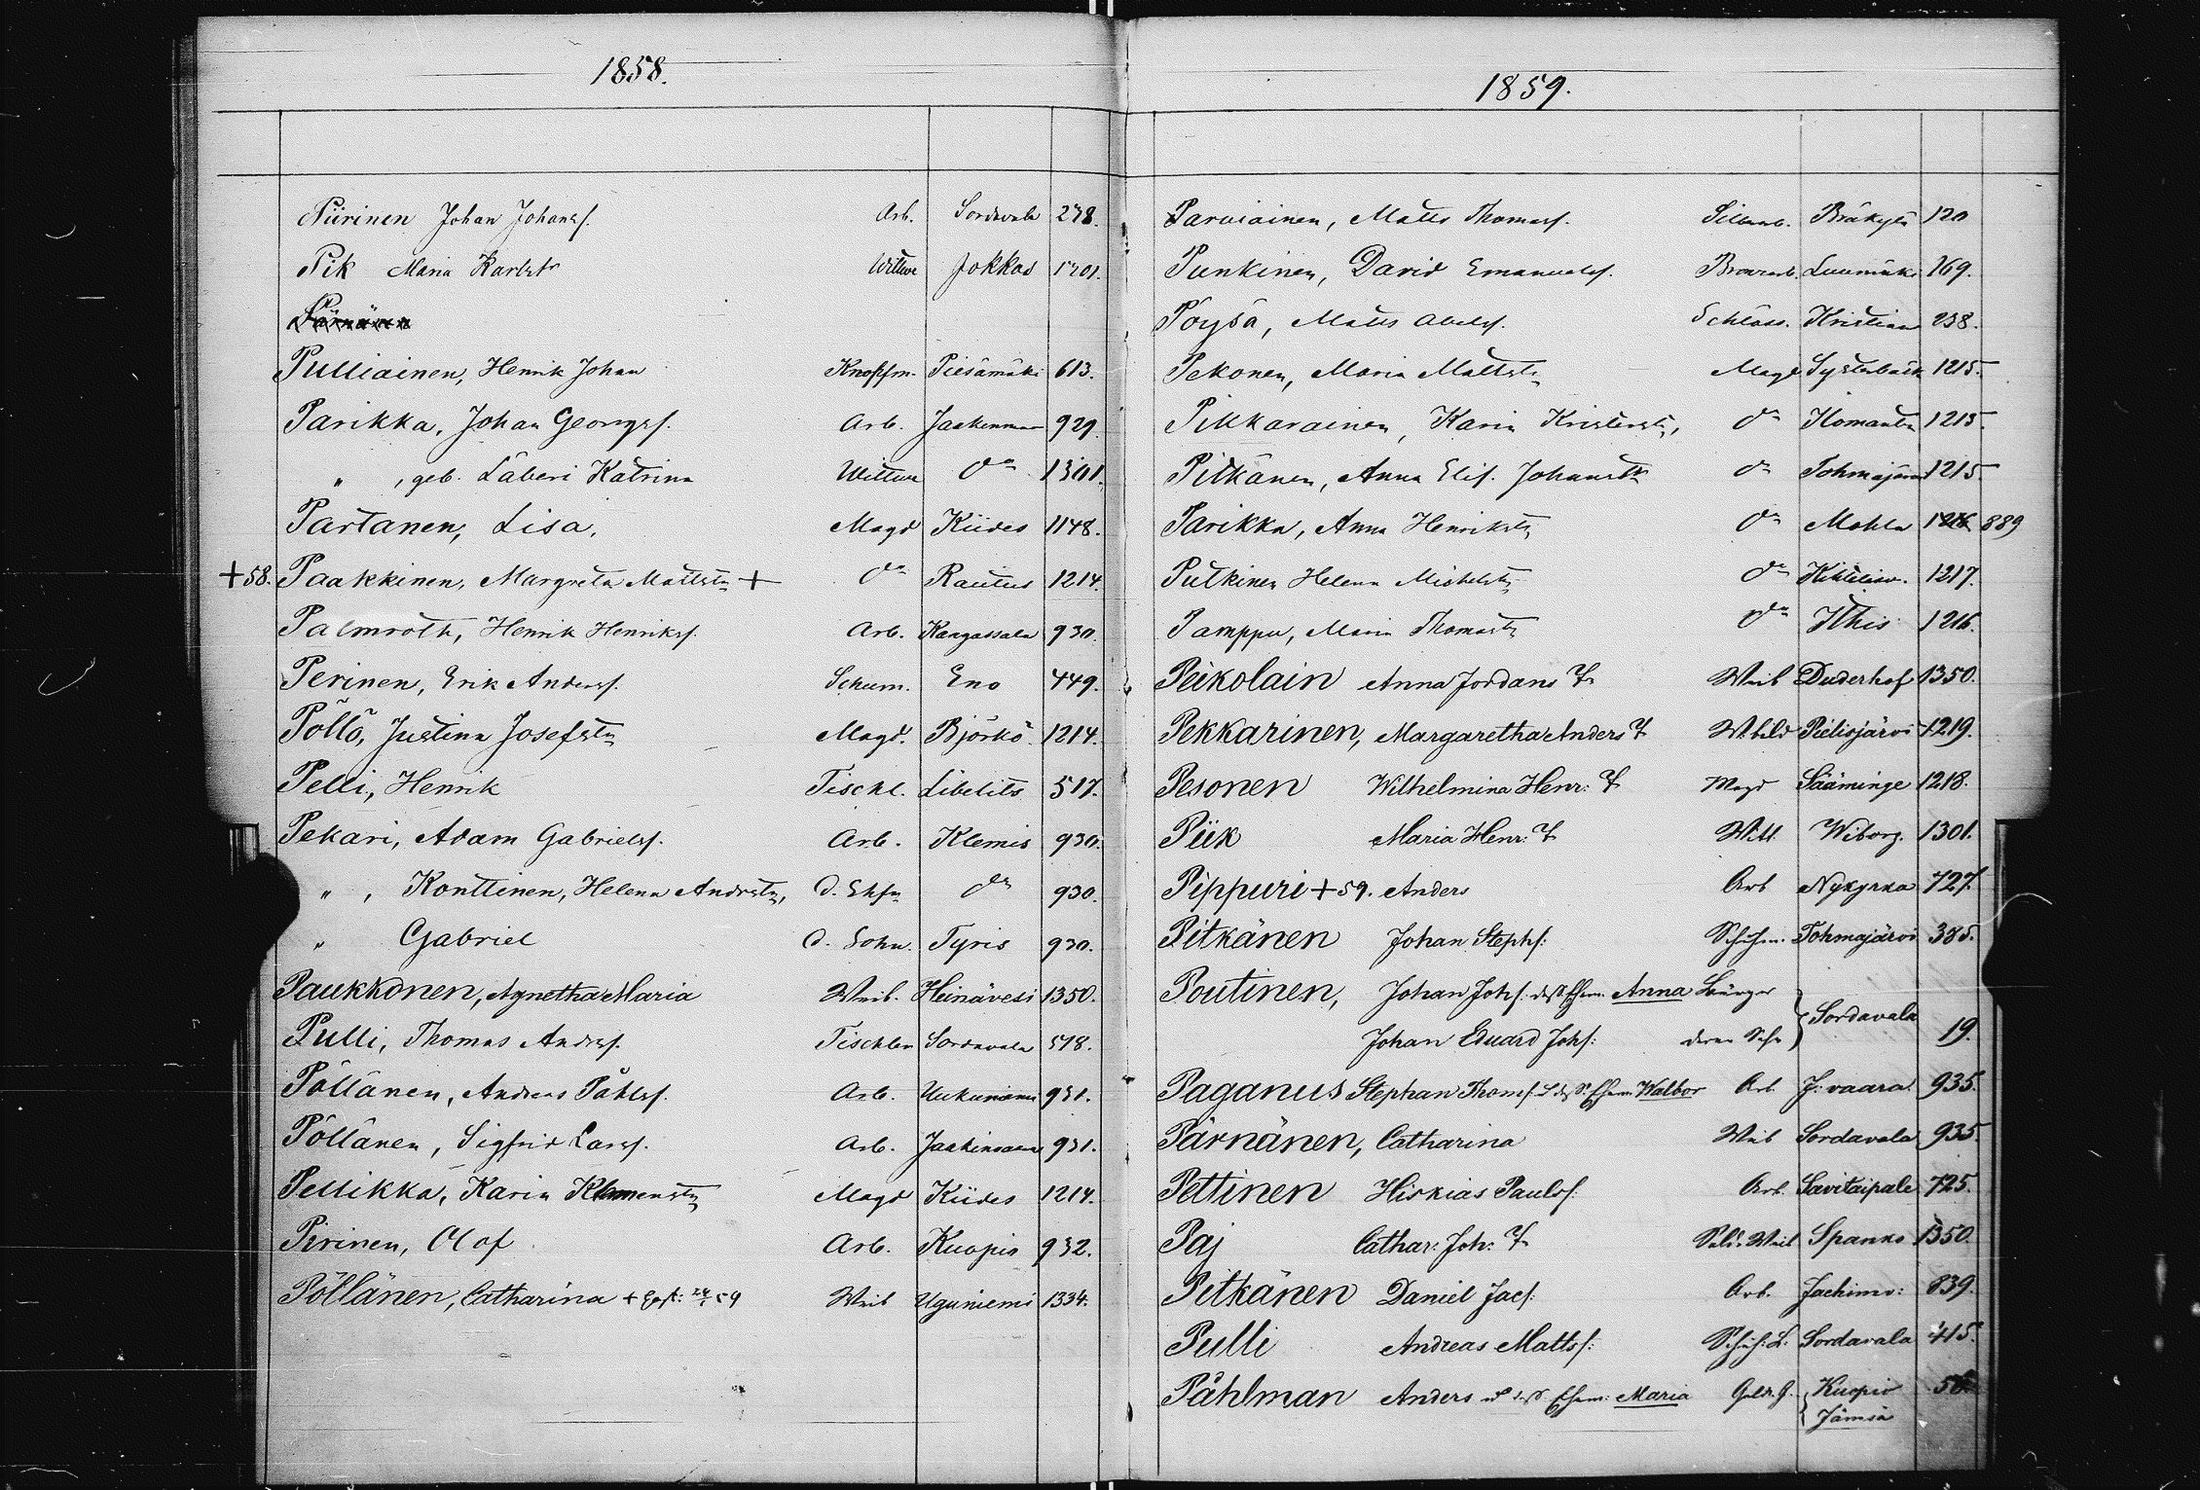 1858.
Piirinen Johan Johansf. Arb. Sordavala 278.
Pik Maria Karlstr Wittwe Jokkas 1301.
Pulliainen, Henrik Johan Knopfm. Piesämäki 613.
Parikka, Johan Georgsf. Arb. 929.
" , geb. Läberi Katrina Wittwe do 1301.
Partanen, Lisa, Magd Kiides 1148.
+58. Paakkinen, Margreta Mattstr + do Rautus 1214.
Palmroth, Henrik Henriksf. Arb. Kangassala 930.
Perinen, Erik Andersf. Schum. Eno 449.
Pöllö, Justina Josefstr Magd. Björkö 1214.
Pelli, Henrik Tischl. Libelits 517.
Pekari, Adam Gabrielsf. Arb. Klemis 930.
" , Konttinen, Helena Andrstr, d. Ehfr do 930.
" Gabriel d. Sohn. Tyris 930.
Paukkonen, Agnetha Maria Weib. Heinävesi 1350.
Pulli, Thomas Andrsf. Tischler Sordavala 518.
Pöllänen, Andreas Påhlsf. Arb. Uukuniemi 931.
Pöllänen, Sigfrid Larsf. Arb. 931.
Pellikka, Karin Klemenstr Magd Kiides 1214.
Pirinen, Olof Arb. Kuopio 932.
Pöllänen, Catharina + 59 Weib Uguniemi 1334.
1859.
Parviainen, Matts Thomasf. Silberarb. Bräkylä 120
Punkinen, David Emanuelsf. Luumäki 169.
Pöysä, Matts Abelsf. Schloss. Kristian 238.
Pekonen, Maria Mattstr Magd Systerbäck 1215.
Pikkarainen, Karin Kristerstr, do Ilomants 1215.
Pitkänen, Anna Elis. Johanstr do Tohmajärvi 1215.
Parikka, Anna Henrikstr do Mohla 1216 889
Putkinen Helena Michelstr do 1217.
Pamppu, Maria Thomastr do Ithis 1216.
Peikolain Anna Jordans T. Weib Duderhof 1350.
Pekkarinen, Margaretha Anders T. Pielisjärvi 1219.
Pesonen Wilhelmina Henr: T. Magd Sääminge 1218.
Piik Maria Henr: T. Witt. Wiborg. 1301.
Pippuri +59. Anders Arb Nykyrka 727.
Pitkänen Johan Stephf: Schuhm. Tohmajärvi 385.
Poutinen, Johan Johf. dess Ehem. Anna Bürger
Johan Eduard Johf: deren Sohn } Sordavala 19.
Paganus Stephan Thomf. u dess Ehem. Walbor Arb. J: vaara 935.
Pärnänen, Catharina Weib Sordavala 935.
Pettinen Hiskias Paulsf. Arb. Savitaipale 725.
Paj Cathar: Joh: T. Sold. Weib Spanko 1350.
Pitkänen Daniel Jacf. Arb. Jachimv: 839.
Pulli Andreas Mattsf: Schuh: L. Sordavala 415.
Påhlman Anders u dess Ehem: Maria Gold. G. { Kuopio 56.
Jämsä